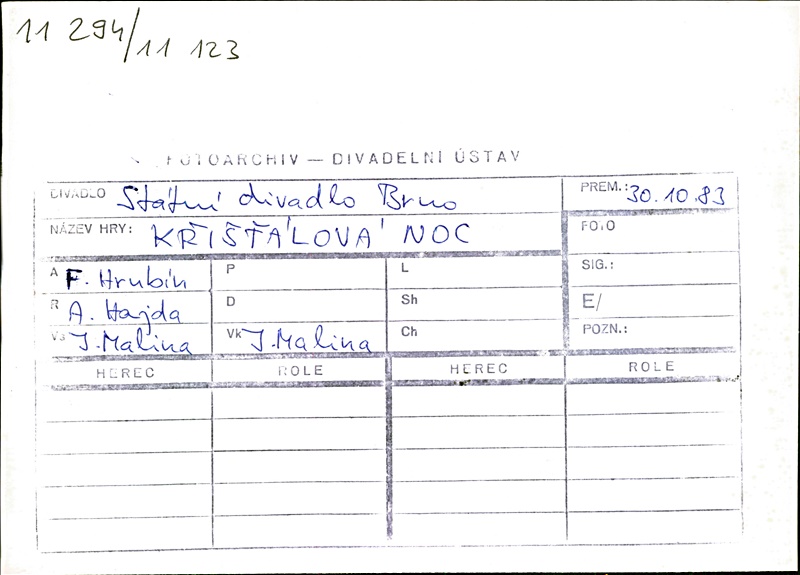 11 294/11 123
FOTOARCHIV — DIVADELNÍ ÚSTAV
DIVADLO Státní divadlo Brno
PREM.: 30.10.83
NÁZEV HRY: KŘIŠŤÁLOVÁ NOC
FOTO
A F. Hrubín
P
L
SIG.:
R A. Hajda
D
Sh
E/
Vs J. Malina
Vk J. Malina
Ch
POZN.:
HEREC ROLE HEREC ROLE